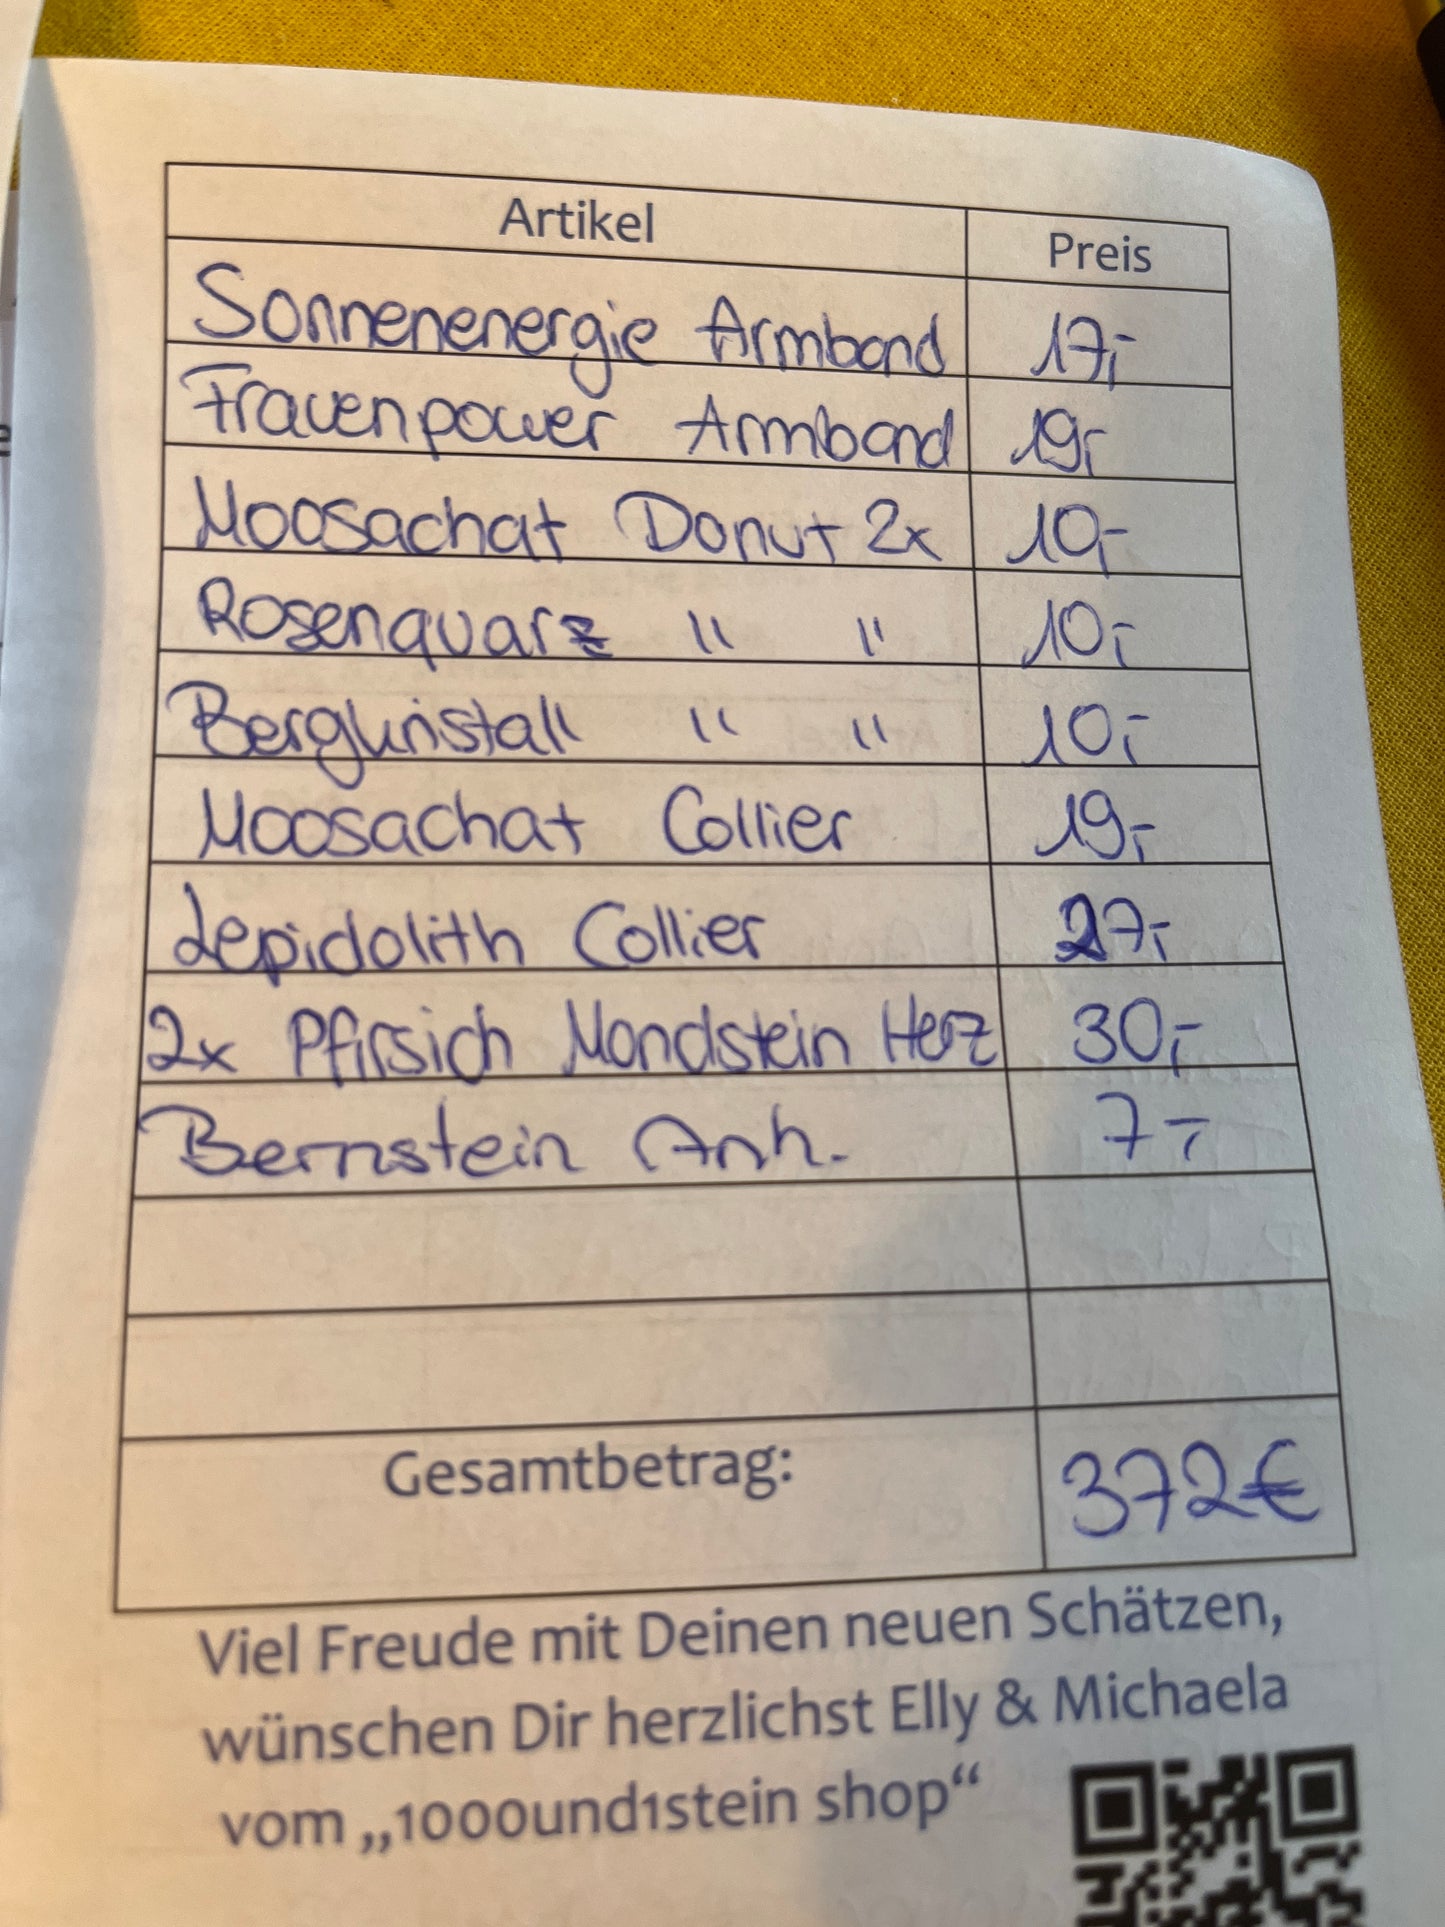 Artikel Preis
Sonnenenergie Armband 17,-
Frauenpower Armband 19,-
Moosachat Donut 2x 10,-
Rosenquarz " " 10,-
Bergkristall " " 10,-
Moosachat Collier 19,-
Lepidolith Collier 27,-
2x Pfirsich Mondstein Herz 30,-
Bernstein Anh. 7,-
Gesamtbetrag: 372€
Viel Freude mit Deinen neuen Schätzen,
wünschen Dir herzlichst Elly & Michaela
vom „1000und1stein shop“